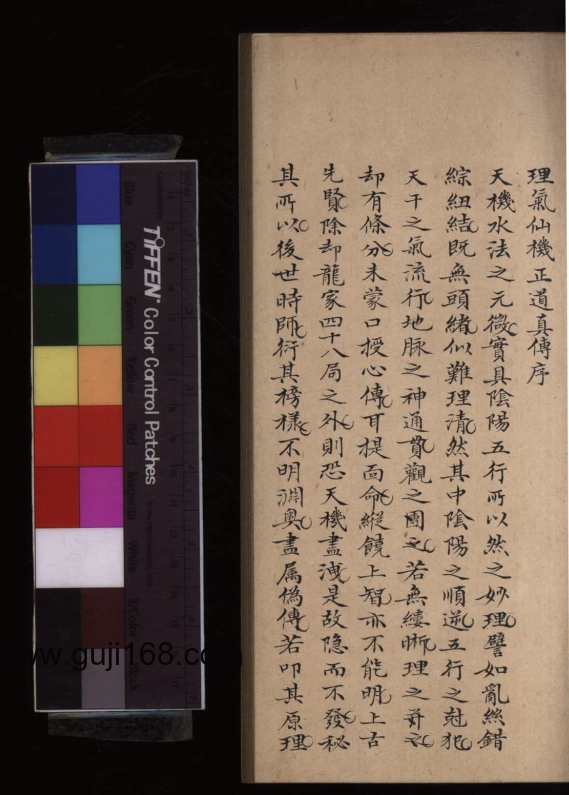 理氣仙機正道真傳序
天機水法之元微實具陰陽五行所以然之妙理譬如亂絲錯
綜紐結既無頭緒似難理清然其中陰陽之順逆五行之尅犯
天干之氣流行地脉之神通貫觀之固若無縷晰理之
却有條分未蒙口授心傳耳提面命縱饒上智亦不能明上古
先賢除却龍家四十八局之外則恐天機盡洩是故隐而不發秘
其所以後世時師衍其榜樣不明淵奥盡属偽傳若叩其原理
TIFFEN Color Control Patches
Blue
Cyan
Green
Yellow
Red
Magenta
White
3/Color
Black
www.guji168.com